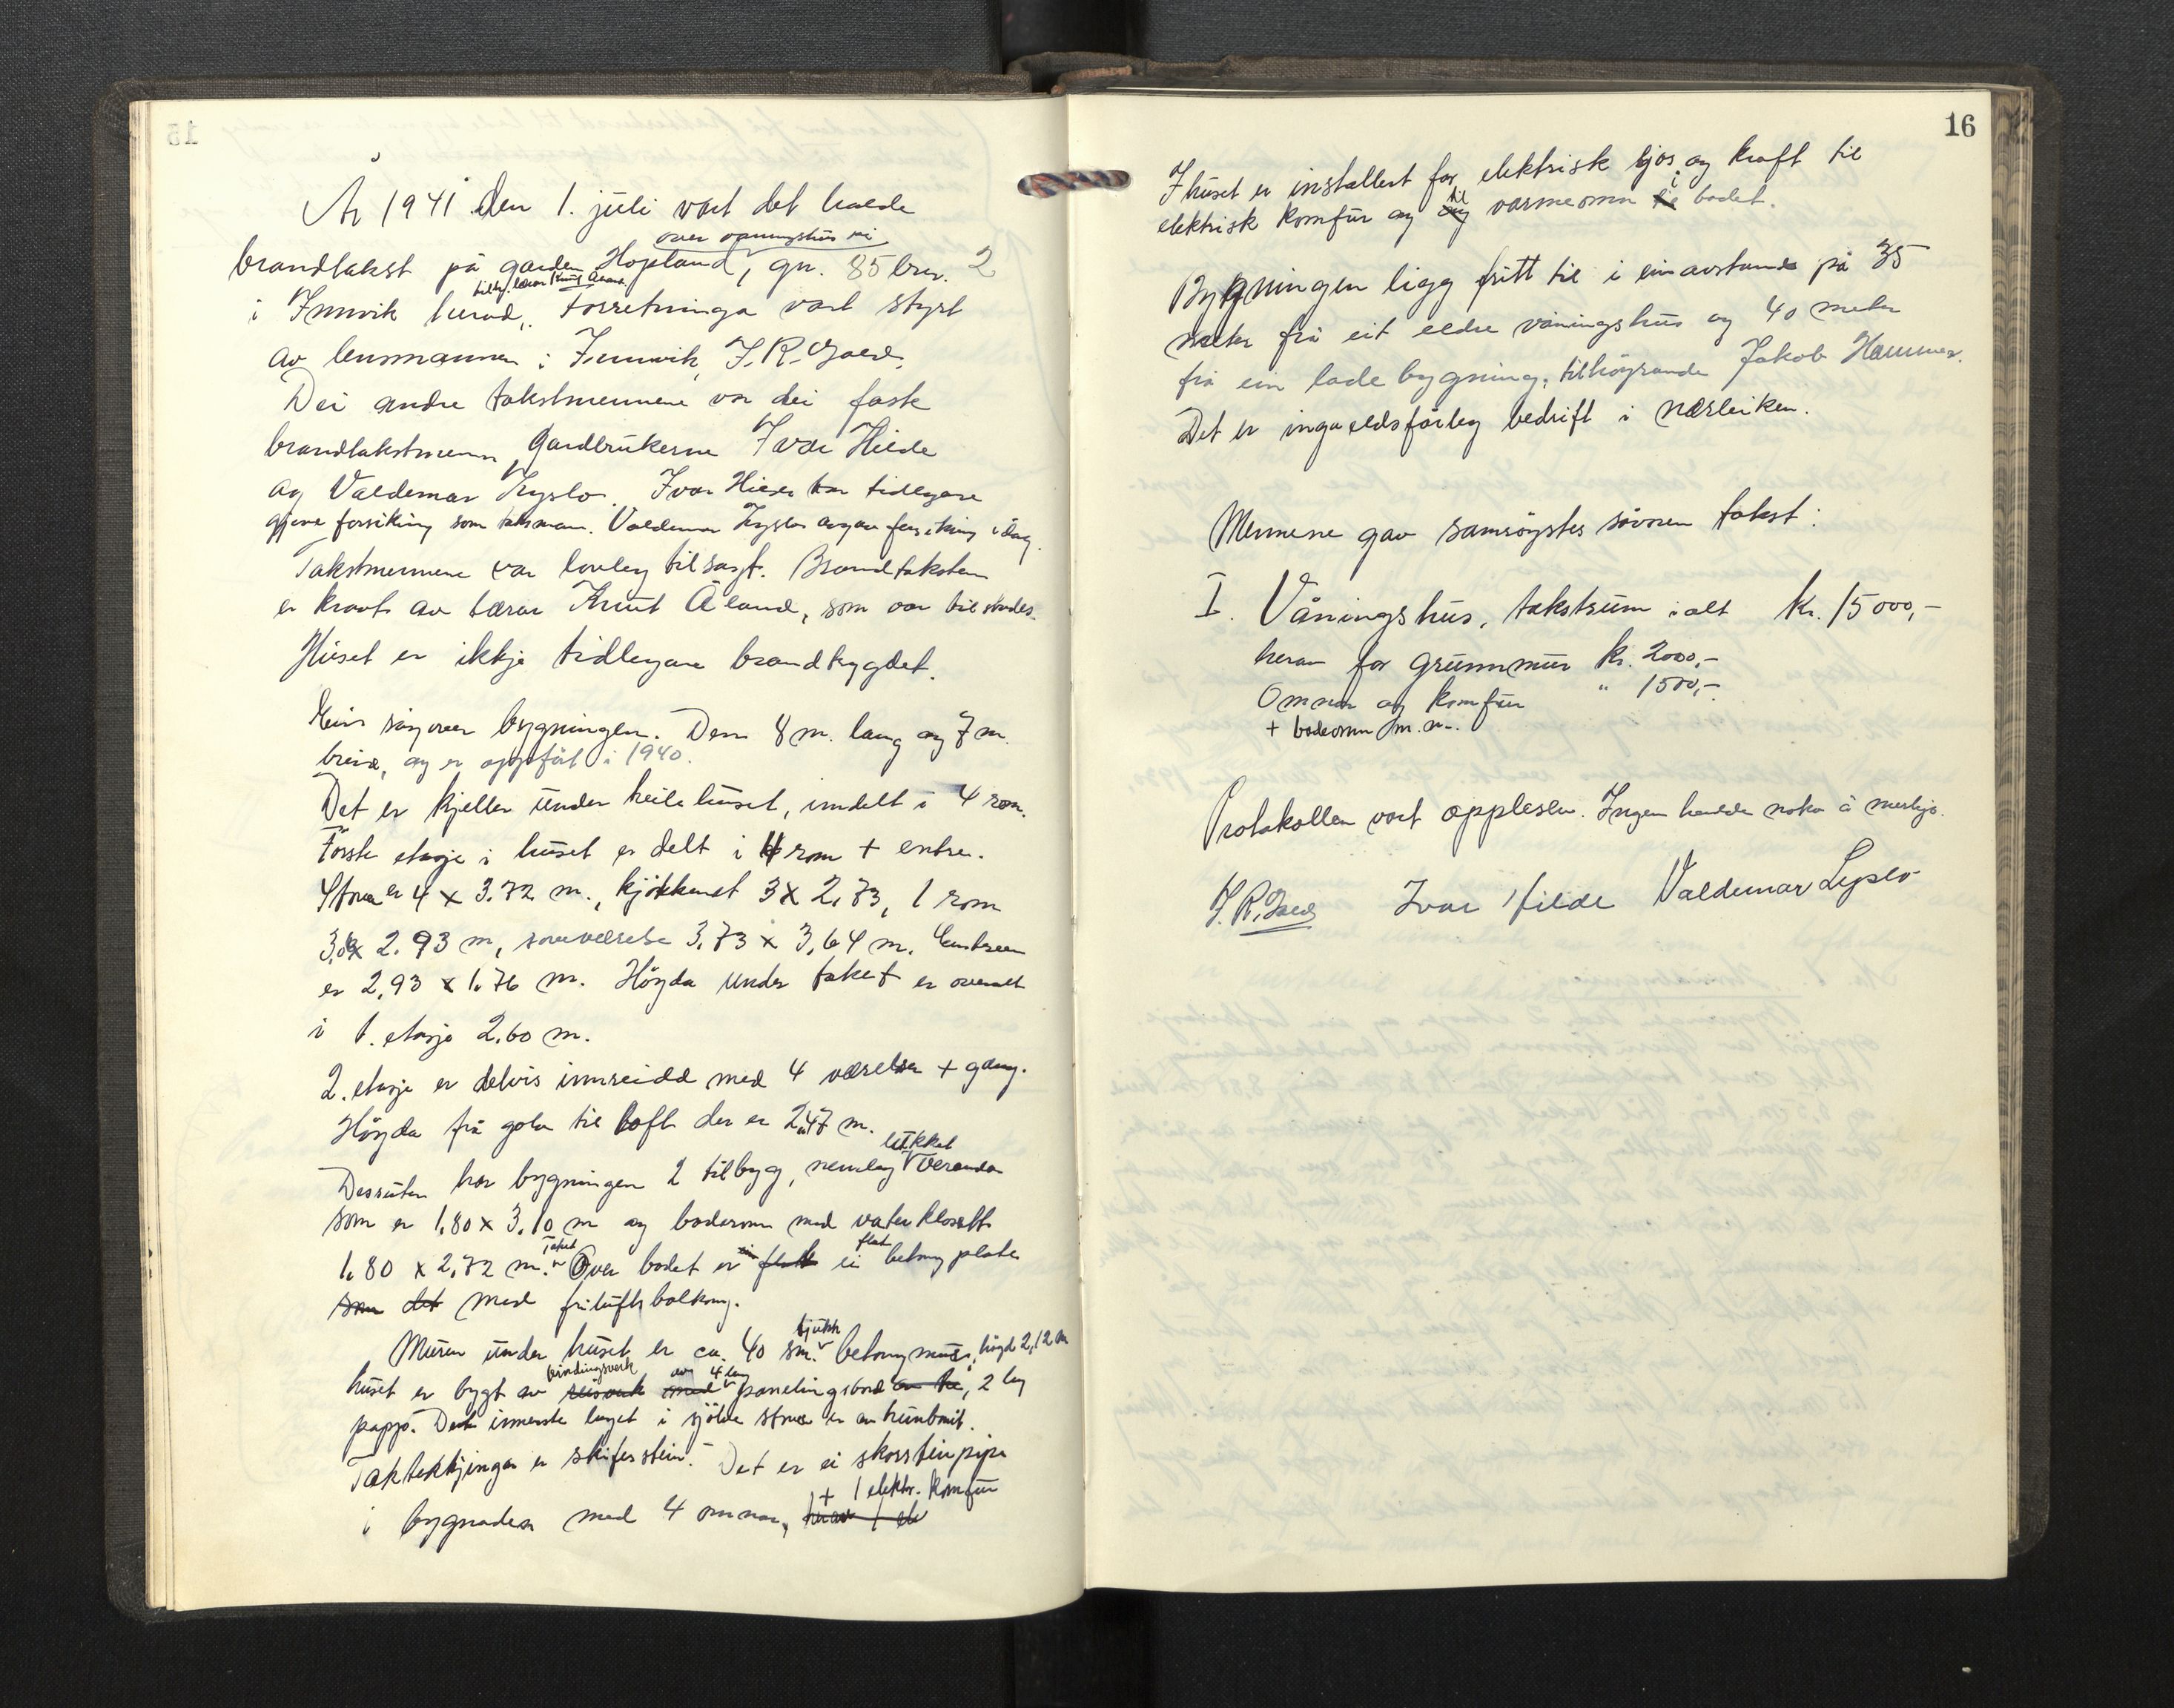 År 1941 den 1. juli vart det halde
over vaningshus på
brandtakst på garden Hopland, gn. 85 brn. 2
tilh. lærar Knut Åland
i Innvik herad. Forretninga vart styrt
av lensmannen i Innvik, J. R. Gaed.
Dei andre takstmennene var dei faste
brandtakstmenn gardbrukerne Ivar Hilde
og Valdemar Lyslo. Ivar Hilde har tidlegare
gjeve forsikring som taksmann. Valdemar Lyslo avgav forsikring idag.
Takstmennene var lovleg tilsagt. Brandtaksten
er kravt av lærar Knut Åland, som var tilstades.
Huset er ikkje tidlegare brandtrygdet.
Ein såg over bygningen. Den 8 m. lang og 7 m.
breid, og er oppført i 1940.
Det er kjeller under heile huset, inndelt i 4 rom.
Första etasje i huset er delt i 4 rom + entre.
Stova er 4 x 3.72 m., kjökkenet 3 x 2,73, 1 rom
3,64 x 2.93 m, soveværelse 3,73 x 3,64 m. Entreen
er 2,93 x 1.76 m. Högda under taket er overalt
i 1. etasje 2.60 m.
2. etasje er delvis innreidd med 4 værelser + gang.
Högda frå golv til loft der er 2,47 m.
lukket
Dessuten har bygningen 2 tilbygg, nemleg veranda
som er 1,80 x 3,10 m og baderom med vaterklosett
Taket flat
1,80 x 2,72 m. Over badet er ei betong plate
som det med friluftsbalkong.
tjukk
Muren under huset er ca. 40 sm. betongmur, högd 2,12 m
bindingsverk av 4 lag
huset er bygt av reisverk med panelingsbord av , 2 lag
papp. Det innerste laget i sjölve stova er av huntonit.
Taktekkjinga er skiferstein. Det er ei skorsteinpipe
+ 1 elektr. komfur
i bygnaden med 4 omnar, herav 1 el
16
I huset er installert for elektrisk ljos og kraft til
til i
elektrisk komfur og og varmeomn badet.
Bygningen ligg fritt til i ein avstand på 35
meter frå eit eldre våningshus og 40 meter
frå ein lade bygning, tilhöyrande Jakob Hammer.
Det er inga eldsfårleg bedrift i nærleiken.
Mennene gav samröystes såvoren takst:
I. Våningshus, takstsum ialt kr. 15000,-
herav for grunnmur kr. 2000,-
Omnar og komfur " 1500,-
+ badeomn m. m.
Protokollen vart opplesen. Ingen hadde noko å merkja.
J. R. Gaed Ivar Hilde Valdemar Lyslo
15